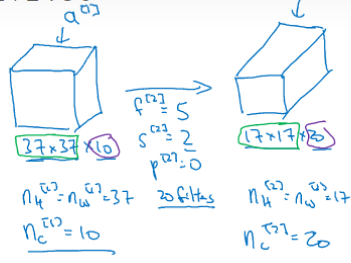 a^[1]
37×37×10
n_H^[1] = n_W^[1] = 37
n_c^[1] = 10
f^[2] = 5
s^[2] = 2
p^[2] = 0
20 filters
17×17×20
n_H^[2] = n_W^[2] = 17
n_c^[2] = 20